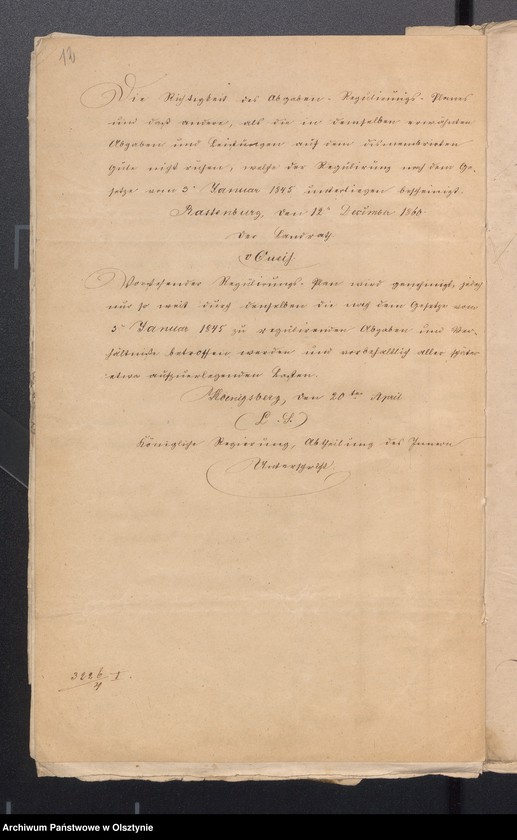 12
Die Richtigkeit des Abgaben-Regulirungs-Plans
und daß andere, als die in demselben erwähnten
Abgaben und Leistungen auf dem dismembrirten
Gute nicht ruhen, welche der Regulirung nach dem Ge-
setze vom 3n Januar 1845 unterliegen bescheinigt.
Rastenburg, den 12n December 1860
Der Landrath
Vorstehender Regulirungs-Plan wird genehmigt, jedoch
nur so weit durch denselben die nach dem Gesetze vom
3n Januar 1845 zu regulirenden Abgaben und Ver-
hältniße betroffen werden und vorbehaltlich aller später
etwa aufzuerlegenden Lasten.
Koenigsberg, den 20ten April
(L. S.)
Königliche Regierung, Abtheilung des Innern
Unterschrift
I.
Archiwum Państwowe w Olsztynie